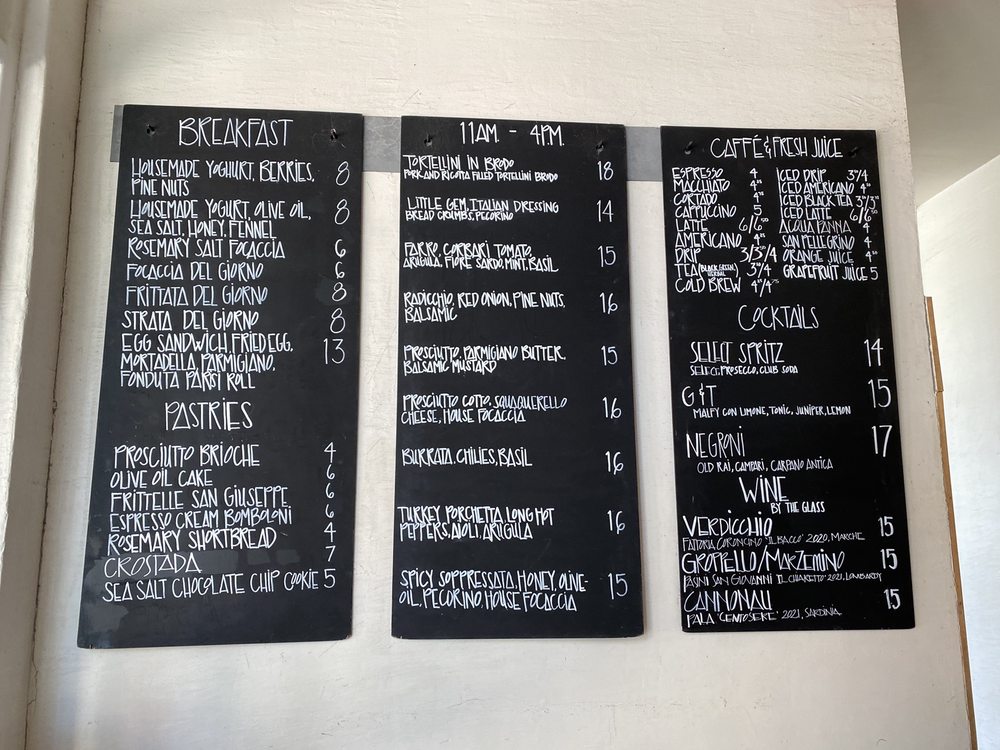 BREAKFAST
HOUSEMADE YOGHURT, BERRIES, 8
PINE NUTS
HOUSEMADE YOGURT, OLIVE OIL, 8
SEA SALT, HONEY, FENNEL
ROSEMARY SALT FOCACCIA 6
FOCACCIA DEL GIORNO 6
FRITTATA DEL GIORNO 8
STRATA DEL GIORNO 8
EGG SANDWICH, FRIED EGG, 13
MORTADELLA, PARMIGIANO,
FONDUTA PARISI ROLL
PASTRIES
PROSCIUTTO BRIOCHE 4
OLIVE OIL CAKE 6
FRITTELLE SAN GIUSEPPE 6
ESPRESSO CREAM BOMBOLONI 6
ROSEMARY SHORTBREAD 4
CROSTADA 7
SEA SALT CHOCOLATE CHIP COOKIE 5
11AM. - 4PM.
TORTELLINI IN BRODO 18
PORK AND RICOTTA FILLED TORTELLINI BRODO
LITTLE GEM, ITALIAN DRESSING 14
BREAD CROUMBS, PECORINO
FARRO, CORBARI TOMATO, 15
ARUGULA, FIORE SARDO, MINT, BASIL
RADICCHIO, RED ONION, PINE NUTS 16
BALSAMIC
PROSCIUTTO, PARMIGIANO BUTTER, 15
BALSAMIC MUSTARD
PROSCIUTTO COTTO, SQUAQUERELLO 16
CHEESE, HOUSE FOCACCIA
BURRATA, CHILIES, BASIL 16
TURKEY PORCHETTA, LONG HOT 16
PEPPERS, AIOLI, ARUGULA
SPICY SOPPRESSATA, HONEY, OLIVE- 15
OIL, PECORINO, HOUSE FOCACCIA
CAFFÉ & FRESH JUICE
ESPRESSO 4
MACCHIATO 4
CORTADO 4
CAPPUCCINO 5
LATTE 6/6
AMERICANO 4
DRIP 3/3/4
TEA (BLACK, GREEN, HERBAL) 3/4
COLD BREW 4/4
ICED DRIP 3/4
ICED AMERICANO 4
ICED BLACK TEA 3/3
ICED LATTE 6/6
ACQUA PANNA 4
SAN PELLEGRINO 4
ORANGE JUICE 4
GRAPEFRUIT JUICE 5
COCKTAILS
SELECT SPRITZ 14
SELECT, PROSECCO, CLUB SODA
G & T 15
MALFY CON LIMONE, TONIC, JUNIPER, LEMON
NEGRONI 17
OLD RAJ, CAMPARI, CARPANO ANTICA
WINE
BY THE GLASS
VERDICCHIO 15
FATTORIA CORONCINO 'IL BACCO' 2020, MARCHE
GROPPELLO/MARZEMINO 15
PASINI SAN GIOVANNI 'IL CHIARETTO' 2021, LOMBARDY
CANNONAU 15
PALA 'CENTOSERE' 2021, SARDINIA